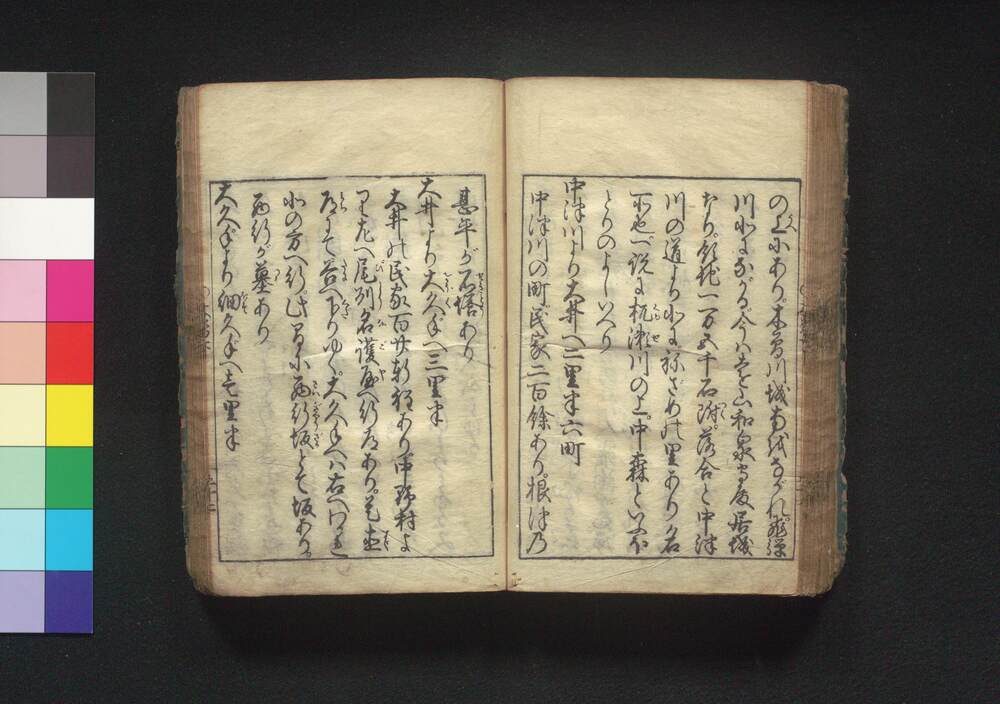 の上にあり。木曽川城南に
川にながる。今は遠山和泉守殿居城
たり。領地一万五千石附。落合と中津
川の道より北にねざめの里あり名
所也。一説に杭瀬川の上。中森といふ
とりのよしいへり
中津川より大井へ二里半六町
中津川の町民家二百餘あり。根津乃
甚平が石塔あり
大井より大久手へ三里半
大井の民家百廿軒程あり中野村よ
り左へ尾州名護屋へ行道あり。是
にて谷へ下りゆく。大久手へは右へ
北の方へ行此間に西行坂とて坂あり。
西行が墓あり
大久手より細久手へ壱里半